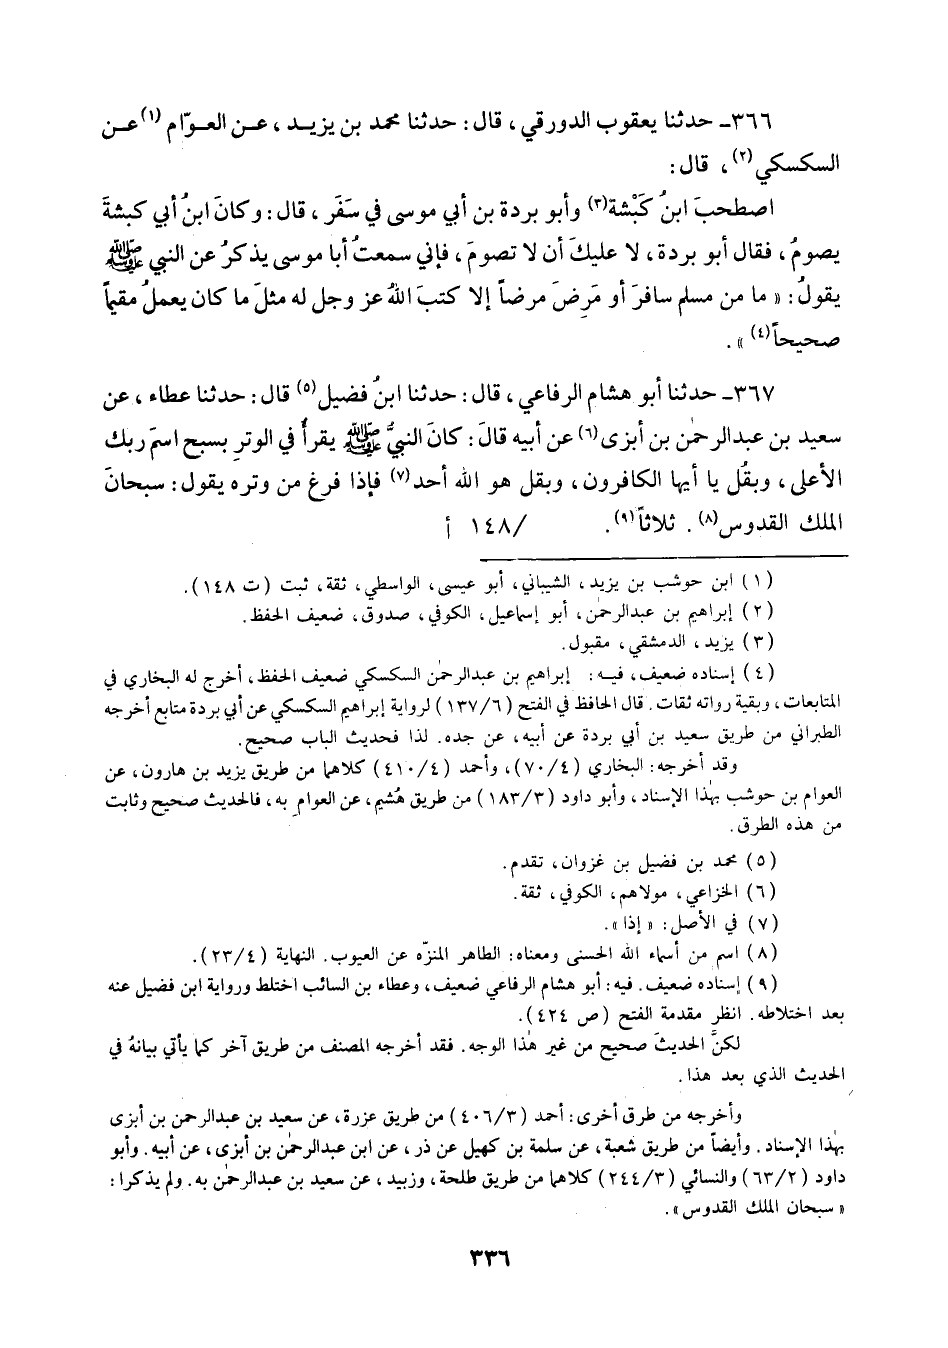 ٣٦٦ـ حدثنا يعقوب الدورقي ، قال : حدثنا محمد بن يزيـد ، عـن العـوّام (١) عـن
السكسكي (٢) ، قال :
اصطحبَ ابنُ كَبْشة(٣) وأبو بردة بن أبي موسى في سَفَر ، قال : وكانَ ابنُ أبي كبشةَ
يصومُ ، فقال أبو بردة ، لا عليكَ أن لا تصومَ ، فإني سمعتُ أبا موسى يذكرُ عن النبي ﷺ
يقولُ : « ما من مسلم سافرَ أو مَرِضَ مرضاً إلا كتبَ اللهُ عز وجل له مثلَ ما كان يعملُ مقيماً
صحيحاً(٤) » .
٣٦٧ـ حدثنا أبو هشام الرفاعي ، قال : حدثنا ابنُ فضيل(٥) قال : حدثنا عطاء ، عن
سعيد بن عبدالرحمٰن بن أبزى(٦) عن أبيه قالَ : كانَ النبيُّ ﷺ يقرأُ في الوترِ بسبح اسمَ ربك
الأعلى ، وبقُل يا أيها الكافرون ، وبقل هو الله أحد(٧) فإذا فرغَ من وتره يقول : سبحانَ
الملك القدوس(٨) . ثلاثاً(٩) . /١٤٨ أ
(١) ابن حوشب بن يزيد ، الشيباني ، أبو عيسى ، الواسطي ، ثقة ، ثبت (ت ١٤٨) .
(٢) إبراهيم بن عبدالرحمٰن ، أبو إسماعيل ، الكوفي ، صدوق ، ضعيف الحفظ .
(٣) يزيد ، الدمشقي ، مقبول .
(٤) إسناده ضعيف ، فيـه : إبراهيم بن عبدالرحمٰن السكسكي ضعيف الحفظ ، أخرج له البخاري في
المتابعات ، وبقية رواته ثقات . قال الحافظ في الفتح (١٣٧/٦) لرواية إبراهيم السكسكي عن أبي بردة متابع أخرجه
الطبراني من طريق سعيد بن أبي بردة عن أبيه ، عن جده . لذا فحديث الباب صحيح .
وقد أخرجه : البخاري (٧٠/٤) ، وأحمد (٤١٠/٤) كلاهما من طريق يزيد بن هارون ، عن
العوام بن حوشب بهٰذا الإسناد ، وأبو داود (١٨٣/٣) من طريق هُشيم ، عن العوامِ به ، فالحديث صحيح وثابت
من هذه الطرق .
(٥) محمد بن فضيل بن غزوان ، تقدم .
(٦) الخزاعي ، مولاهم ، الكوفي ، ثقة .
(٧) في الأصل : « إذا » .
(٨) اسم من أسماء الله الحسنى ومعناه : الطاهر المنزّه عن العيوب . النهاية (٢٣/٤) .
(٩) إسناده ضعيف . فيه : أبو هشام الرفاعي ضعيف ، وعطاء بن السائب اختلط ورواية ابن فضيل عنه
بعد اختلاطه . انظر مقدمة الفتح (ص ٤٢٤) .
لكنَّ الحديثَ صحيح من غير هٰذا الوجه . فقد أخرجه المصنف من طريق آخر كما يأتي بيانهُ في
الحديث الذي بعد هذا .
وأخرجه من طرق أخرى : أحمد (٤٠٦/٣) من طريق عزرة ، عن سعيد بن عبدالرحمن بن أبزى
بهٰذا الإسناد . وأيضاً من طريق شعبة ، عن سلمة بن كهيل عن ذر ، عن ابن عبدالرحمٰن بن أبزى ، عن أبيه . وأبو
داود (٦٣/٢) والنسائي (٢٤٤/٣) كلاهما من طريق طلحة ، وزبيد ، عن سعيد بن عبدالرحمٰن به . ولم يذكرا :
« سبحان الملك القدوس » .
٣٣٦